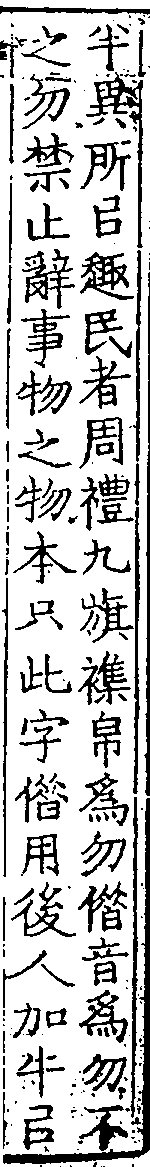 半異所㠯趣民者周禮九旗襍帛爲勿僭音爲勿不
之勿禁止辭事物之物本只此字僭用後人加牛㠯